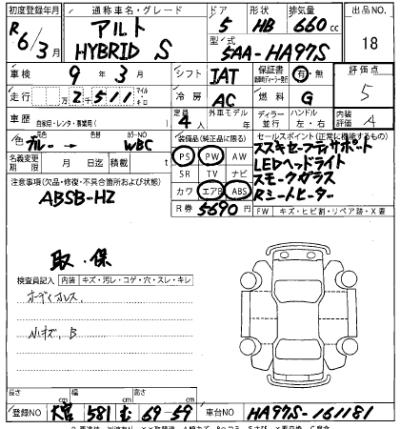 初度登録年月 通称車名・グレード ドア 形状 排気量 出品NO.
R6/3月 アルト HYBRID S 5 HB 660cc 18
型式 5AA-HA97S
車検 9年3月 シフト IAT 保証書 有・無 評価点 5
走行 2千511 冷房 AC 燃料 G
車歴 自家用・レンタ・事業用 定員 4人 外車モデル ディーラー・並行 ハンドル 左・右 内装評価 A
色 ブルー → カラーNO WBC 装備品(純正品に限る) セールスポイント(正常に機能するもの)
PS PW AW スズキセーフティサポート
名義変更期限 月 日迄 積載 t SR TV ナビ LEDヘッドライト
注意事項(欠品・修復・不具合箇所および状態) カワ エアB ABS スモークガラス
ABSB-HZ R券 5690円 Rシートヒーター
FW キズ・ヒビ割・リペア跡・X
取・保
検査員記入 内装 キズ・汚レ・コゲ・穴・スレ・キレ
小キズ、B
長さ 幅 高さ
登録NO 大宮 581 む 69-59 車台NO HA97S-161181